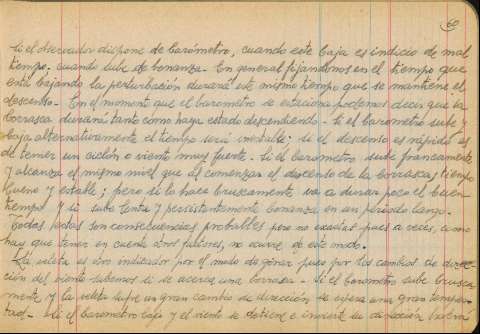 60
Si el observador dispone de barómetro, cuando este baja es indicio de mal
tiempo, cuando sube de bonanza.- En general fijandonos en el tiempo que
está bajando la perturbación durará este mismo tiempo que se mantiene el
descenso.- En el momento que el barometro se estaciona podemos decir que la
borrasca durará tanto como haya estado descendiendo.- Si el barometro sube y
baja alternativamente el tiempo será inestable; si el descenso es rápido es
de temer un ciclón o viento muy fuerte.- Si el barometro sube francamente
y alcanza el mismo nivel que al comenzar el descenso de la borrasca, tiempo
bueno y estable; pero si lo hace bruscamente va a durar poco el buen
tiempo y si sube lenta y persistentemente bonanza en un periodo largo.-
Todas estas son consecuencias probables pero no exactas pues a veces, como
hay que tener en cuenta otros factores, no ocurre de este modo.-
La veleta es otro indicador por el modo de girar pues por los cambios de direc-
ción del viento sabemos si se acerca una borrasca.- Si el barometro sube brusca-
mente y la veleta sufre un gran cambio de dirección se espera una gran tempes-
tad.- Si el barometro baja y el viento se detiene e invierte su dirección habrá